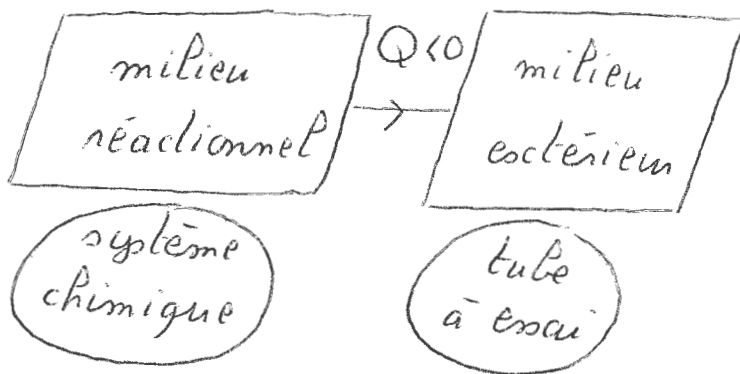 milieu
réactionnel
Q<0
milieu
extérieur
système
chimique
tube
à essai